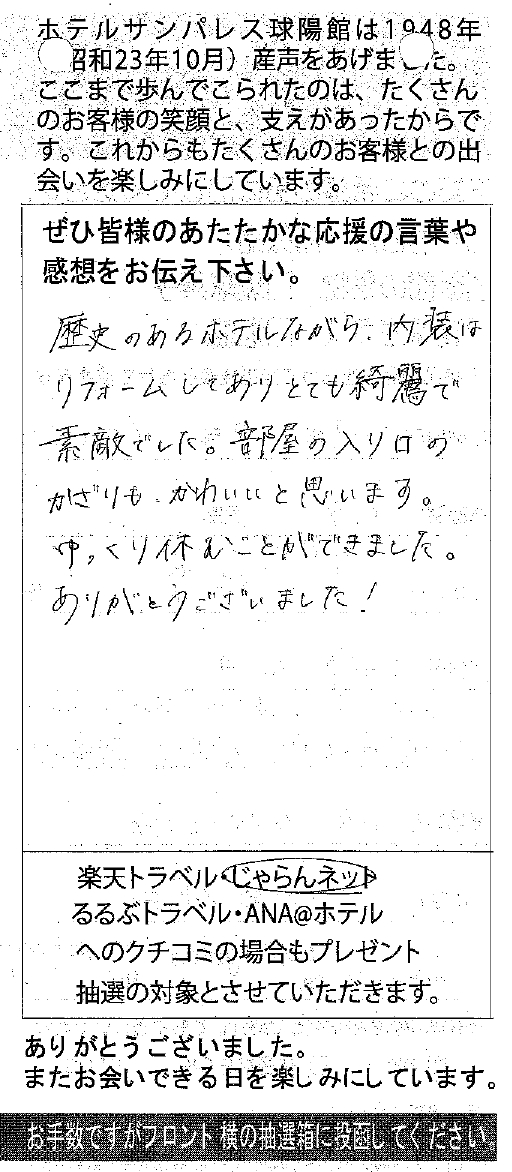 ホテルサンパレス球陽館は1948年
昭和23年10月）産声をあげました。
ここまで歩んでこられたのは、たくさん
のお客様の笑顔と、支えがあったからで
す。これからもたくさんのお客様との出
会いを楽しみにしています。
ぜひ皆様のあたたかな応援の言葉や
感想をお伝え下さい。
歴史のあるホテルながら、内装は
リフォームしてありとても綺麗で
素敵でした。部屋の入り口の
かざりも、かわいいと思います。
ゆっくり休むことができました。
ありがとうございました！
楽天トラベル・じゃらんネット
るるぶトラベル・ANA@ホテル
へのクチコミの場合もプレゼント
抽選の対象とさせていただきます。
ありがとうございました。
またお会いできる日を楽しみにしています。
お手数ですがフロント横の抽選箱に投函してください